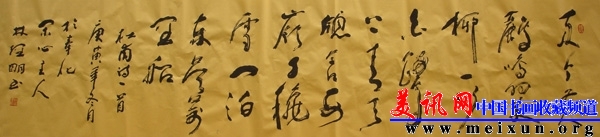 両个黃
鸝鳴翠
柳一行
白鷺
上青天
窗含西
嶺千秋
雪门泊
东吴萬
里船
杜甫诗一首
庚寅年冬月
於奉化
主人
美讯网 中国书画收藏频道
www.meixun.org